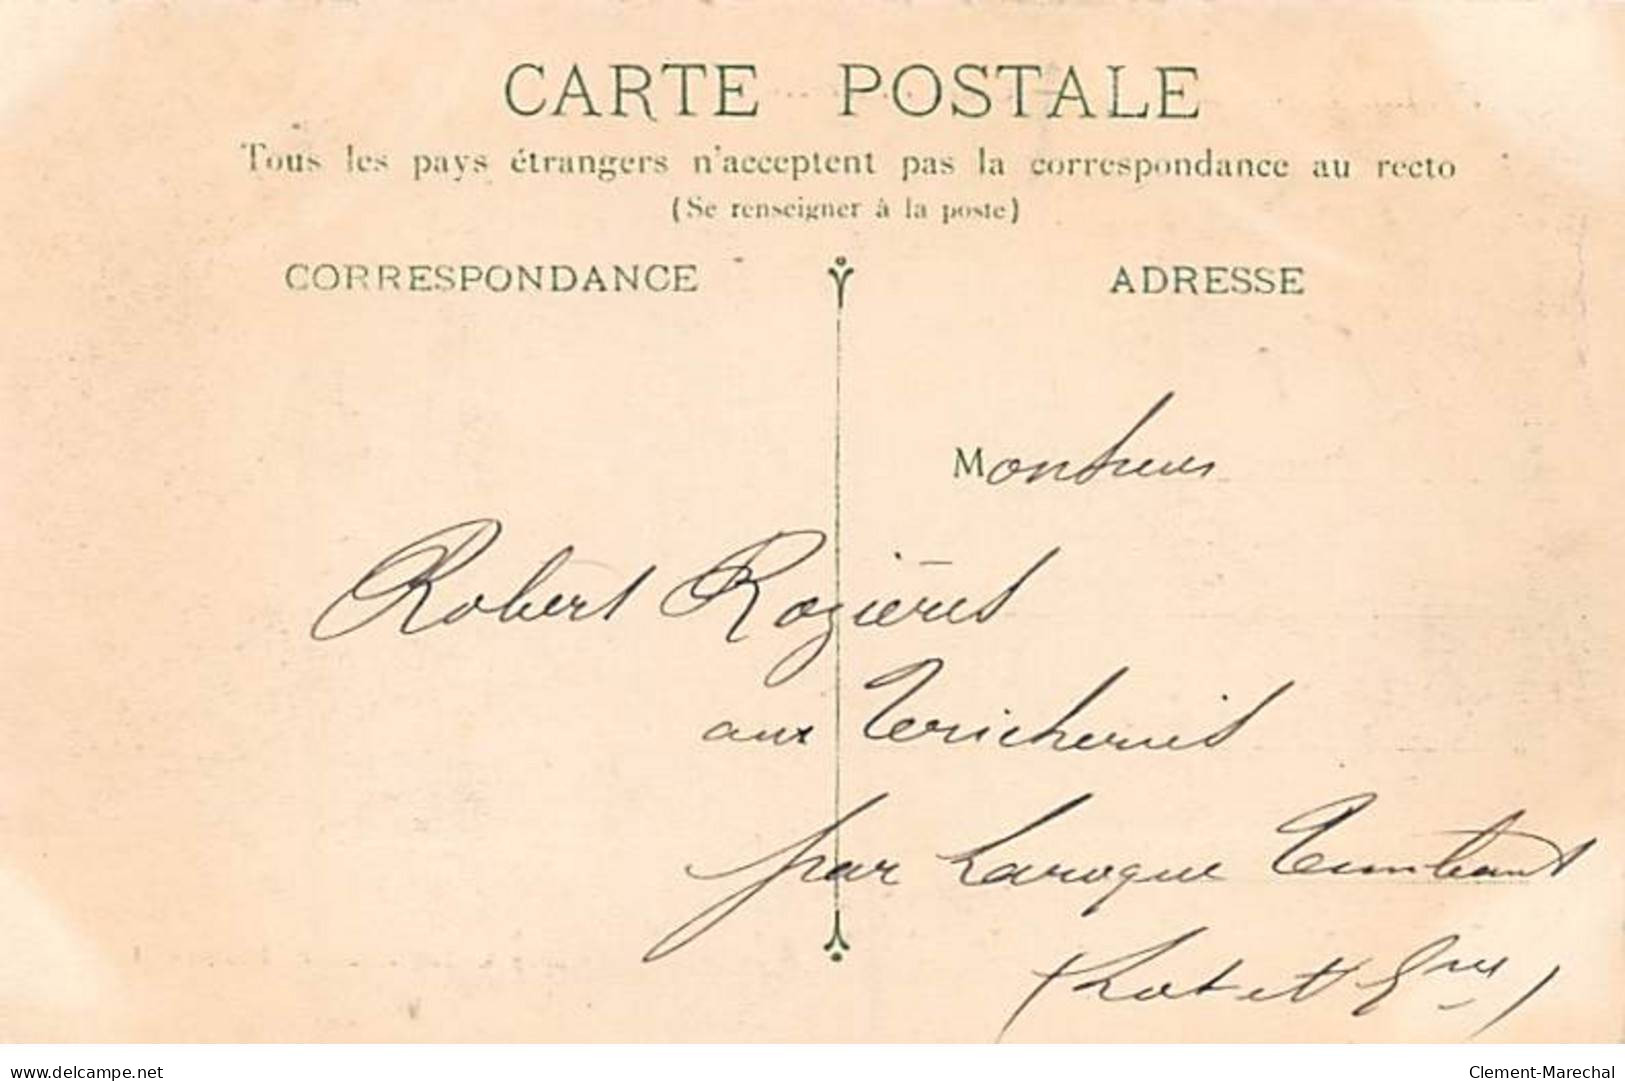 CARTE POSTALE
Tous les pays étrangers n'acceptent pas la correspondance au recto
(Se renseigner à la poste)
CORRESPONDANCE
ADRESSE
Monsieur
Robert Rozières
aux
par Laroque Timbaut
(Lot et Gne)
delcampe.net
Clement-Marechal